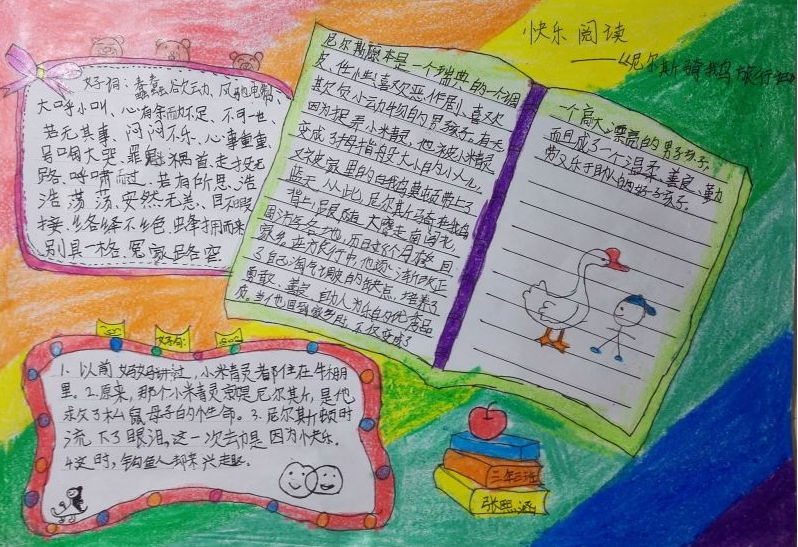 快乐阅读
——《尼尔斯骑鹅旅行记》
好词：蠢蠢欲动、风驰电掣、
大呼小叫、心有余而力不足、不可一世、
若无其事、闷闷不乐、心事重重、
号啕大哭、罪魁祸首、走投无
路、呼啸而过、若有所思、浩
浩荡荡、安然无恙、目不暇
接、络绎不绝、蜂拥而来
别具一格、冤家路窄
尼尔斯原本是一个瑞典的一个调
皮、性情喜欢恶作剧、喜欢
欺负小动物的男孩子。有天
因为捉弄小米青灵，他被小米青灵
变成了拇指般大小的小人儿。
又在家里的白鹅茅帽带上了
蓝天，从此，尼尔斯骑在鹅
背上，跟随大雁走南闯北，
周游各地，历时8个月才返回
家乡。在旅行中，他逐渐改正
了自己淘气调皮的缺点，培养了
勇敢、善良、助人为乐的优秀品
质。当他回到家乡时，不仅变成了
一个高大漂亮的男孩子，
而且成了一个温柔、善良、勤
劳又乐于助人的好孩子。
好句：
1. 以前妈妈讲过，小米青灵都住在牛棚
里。2.原来，那个小米青灵就是尼尔斯，是他
救了松鼠母子的个性命。3.尼尔斯顿时
流下了眼泪，这一次却是因为快乐。
4.这时，钓鱼人却来兴趣。
三年三班
张熙涵